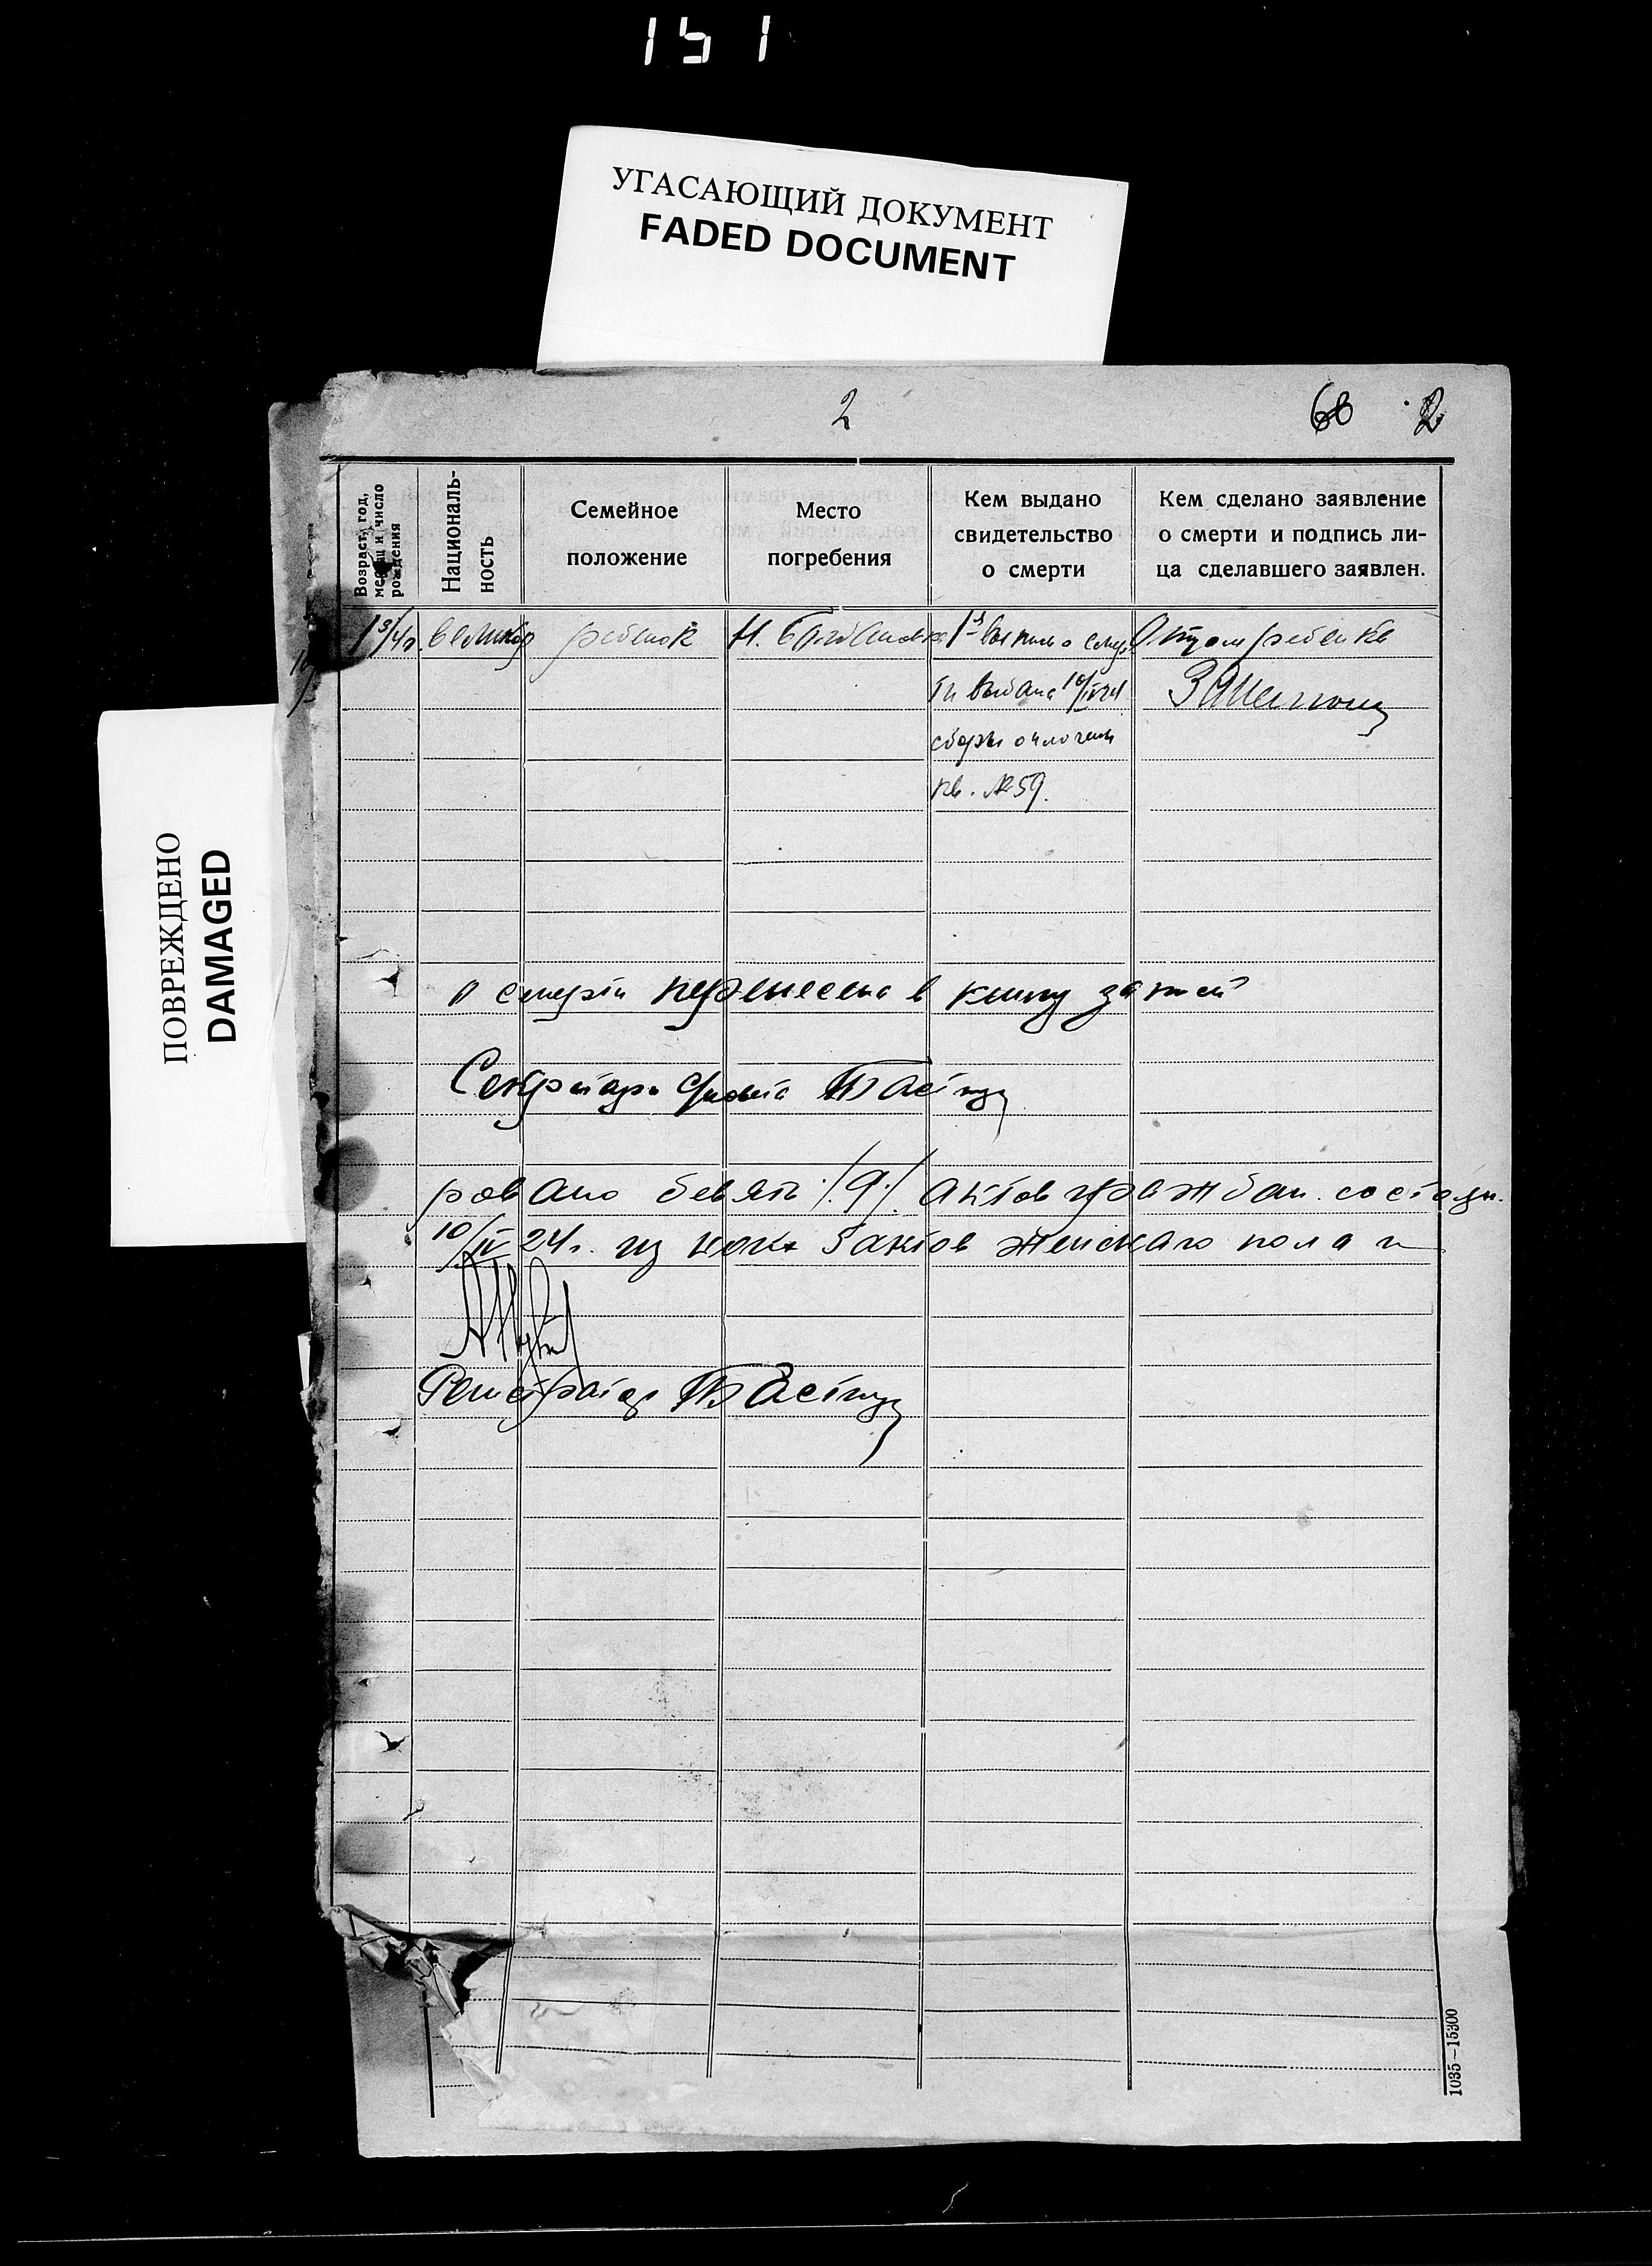 151
УГАСАЮЩИЙ ДОКУМЕНТ
FADED DOCUMENT
ПОВРЕЖДЕНО
DAMAGED
2
68
2
Возраст, год, месяц и число рождения
Националь-
ность
Семейное
положение
Место
погребения
Кем выдано
свидетельство
о смерти
Кем сделано заявление
о смерти и подпись ли-
ца сделавшего заявлен.
1 3/4 г. великор ребенок Н. 1я выпись о смер Отцом ребенка
ти выдана 10/IV 24
сборы оплочены
кв. №59.
о смерти перенесена в книгу записей
Секретарь
ровано девять /9/ актов граждан. состоян.
10/IV 24 г. из коих 5 актов женскаго пола и
Регистратор
1035—15300